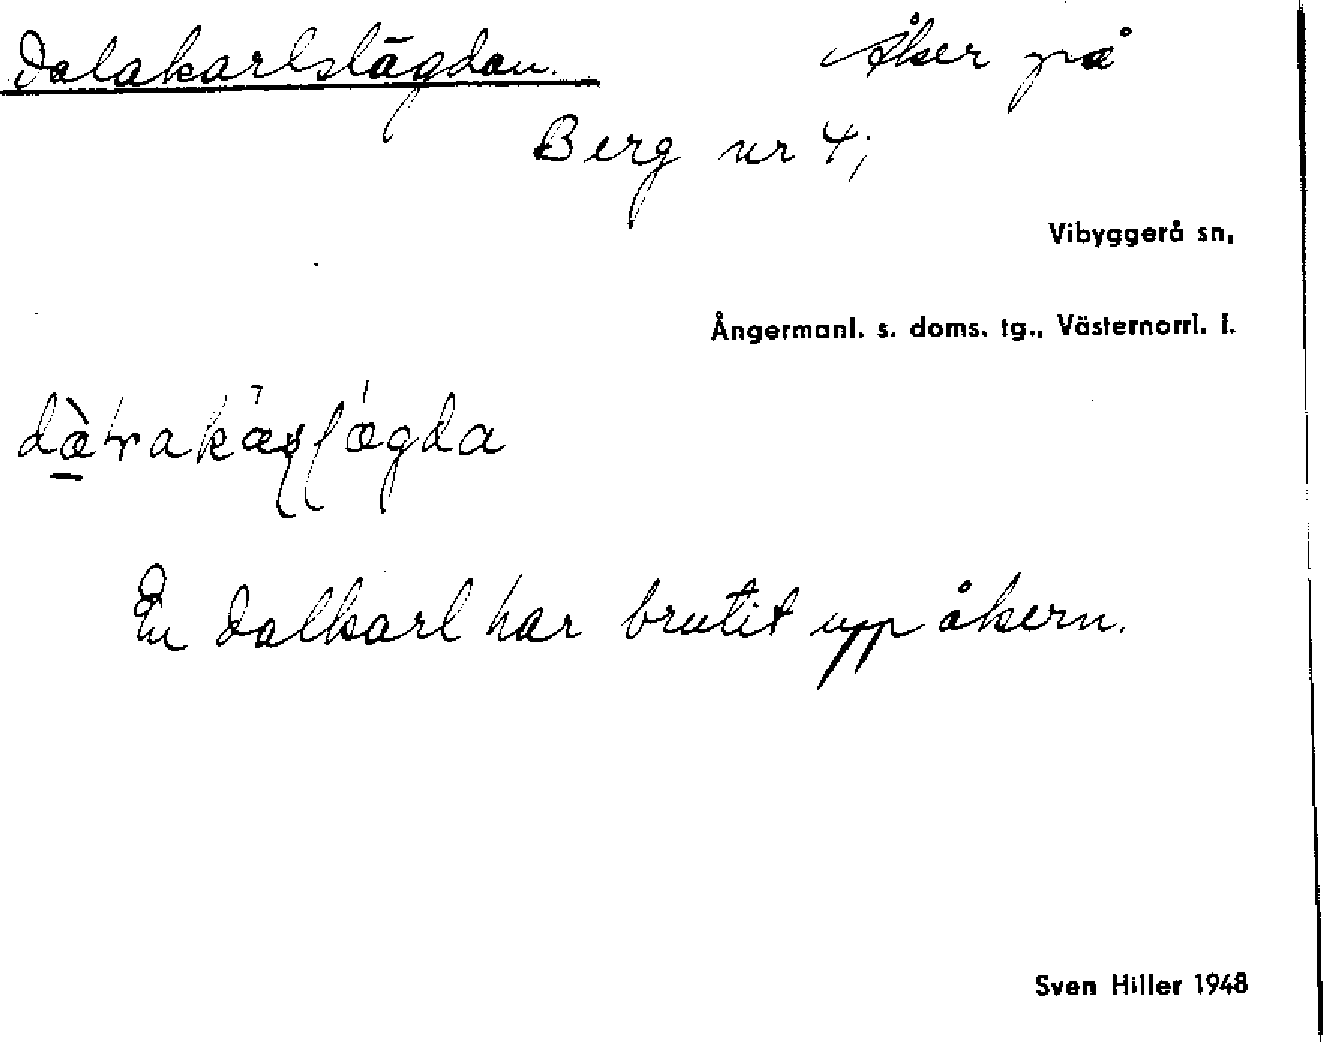 Dalakarlslägdan. Åker på
Berg nr 4;
Vibyggerå sn,
Ångermanl. s. doms. tg., Västernorrl. l.
En dalkarl har brutit upp åkern.
Sven Hiller 1948